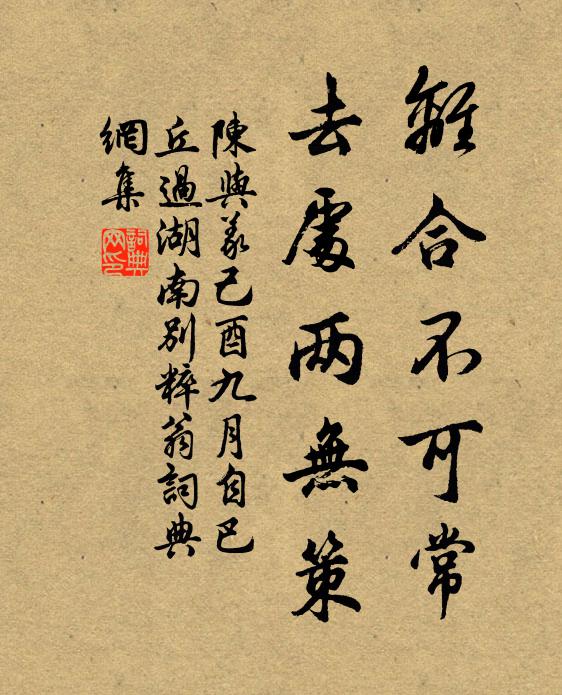 離合不可常
去處两無策
陳與義己酉九月自巴
丘過湖南別粹翁詞典
網集
詞典
网印